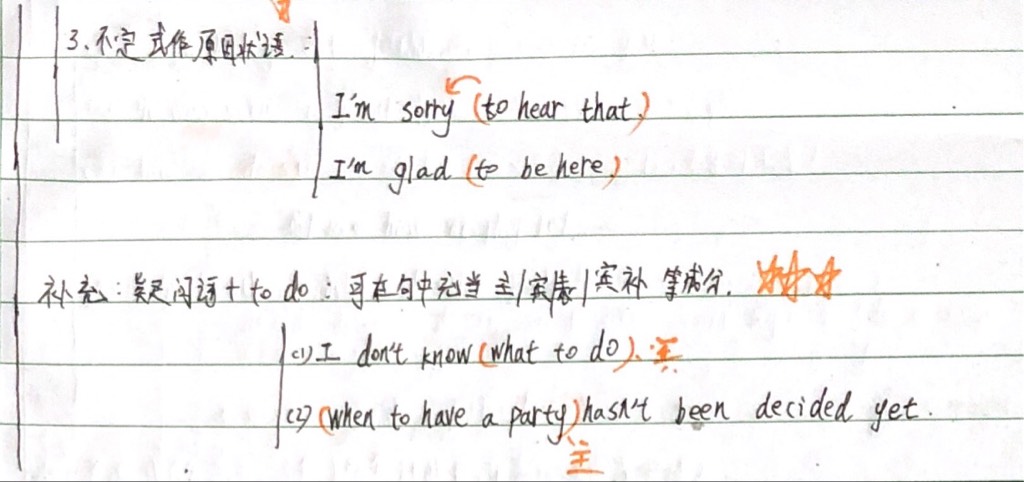 3、不定式作原因状语：
I'm sorry (to hear that.)
I'm glad (to be here.)
补充：疑问词+to do：可在句中充当主/宾/表/宾补等成分.
(1) I don't know (what to do). 宾
(2) (when to have a party) hasn't been decided yet.
主